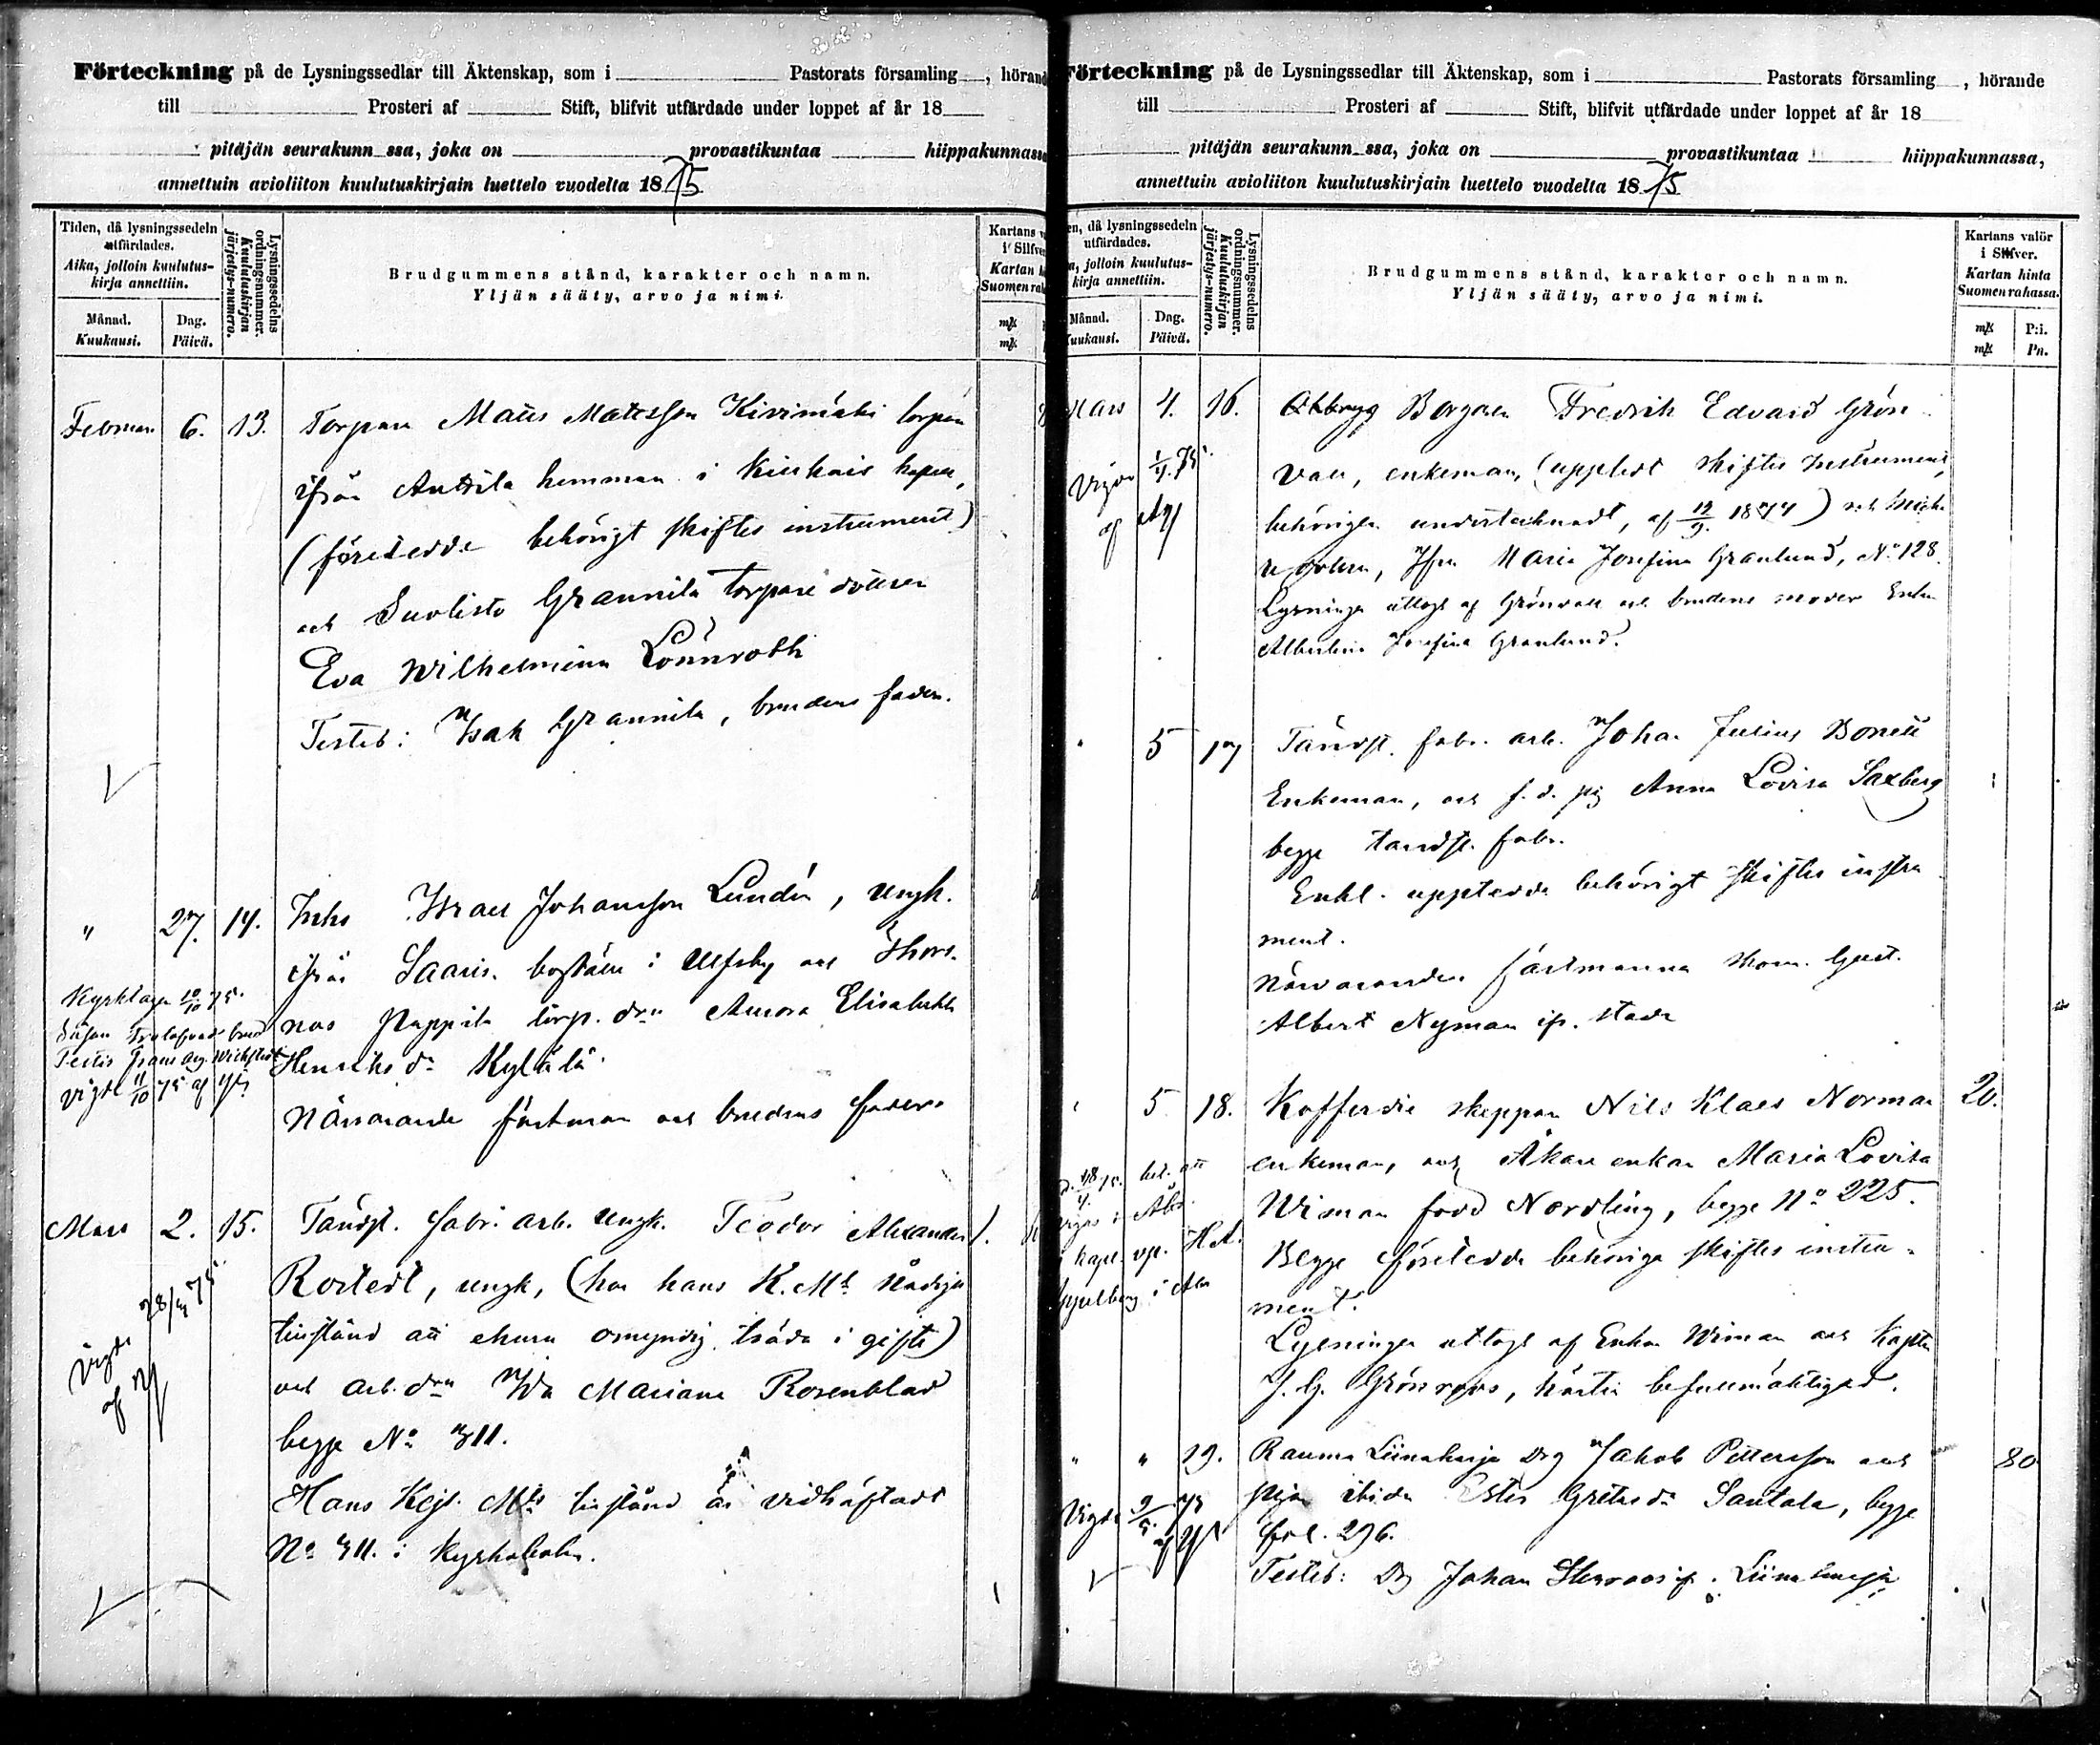 Förteckning på de Lysningssedlar till Äktenskap, som i Pastorats församling , hörand
till Prosteri af Stift, blifvit utfärdade under loppet af år 18
pitäjän seurakunn ssa, joka on provastikuntaa hiippakunnassa
annettuin avioliiton kuulutuskirjain luettelo vuodelta 1875
Tiden, då lysningssedeln
utfärdades.
Aika, jolloin kuulutus-
kirja annettiin.
Månad.
Kuukausi.
Dag.
Päivä.
Lysningssedelns
ordningsnummer.
Kuulutuskirjan
järjestys-numero.
Brudgummens stånd, karakter och namn.
Yljän sääty, arvo ja nimi.
Kartans
i Silfver
Kartan
Suomen
mk
mk
Februari 6. 13. Torparen Matts Mattsson Kivimäki torpare
ifrån Anttila hemman i Kiukais kapell,
(företedde behörigt skiftes instrument)
och Suolisto Grannila torpare dotteren
Eva Wilhelmina Lönnroth
Testes: Isak Grannila, brudens fader.
" 27. 14. Inhs Israel Johansson Lundén, ungk.
ifrån Saaris boställe i Ulfsby och
nas Pappila torp. drn Aurora Elisabeth
Henriks dr Kylälä.
Närvarande fästman och brudens fader.
Kyrktagen 10/10 75.
Vigde 11/10 75 af
Mars 2. 15. Tändst. fabr. arb. ungk. Teodor Alexander 1.
Rostedt, ungk, (har hans K. Mts Nådiga
tillstånd att ehuru omyndig träda i gifte)
och arb. drn Ida Mariana Rosenblad
begge No 311.
Hans Kejs. Mts tillstånd är vidhäftadt
No 311. i Kyrkoboken.
Vigde 28/3 75
af
Förteckning på de Lysningssedlar till Äktenskap, som i Pastorats församling , hörande
till Prosteri af Stift, blifvit utfärdade under loppet af år 18
pitäjän seurakunn ssa, joka on provastikuntaa hiippakunnassa,
annettuin avioliiton kuulutuskirjain luettelo vuodelta 1875
en, då lysningssedeln
utfärdades.
a, jolloin kuulutus-
kirja annettiin.
Månad.
uukausi.
Dag.
Päivä.
Lysningssedelns
ordningsnummer.
Kuulutuskirjan
järjestys-numero.
Brudgummens stånd, karakter och namn.
Yljän sääty, arvo ja nimi.
Kartans valör
i Silfver.
Kartan hinta
Suomen rahassa.
mk
mk
P:i.
Pn.
Mars 4. 16. Borgaren Fredrik Edvard Grön
vall, enkeman, (upptedt skiftes Instrument,
behörigen undertecknadt, af 12/9 1874) och
Jfrn Maria Josefina Granlund, No 128.
Lysningen uttogs af Grönvall och brudens moder Enkan
Albertina Josefina Granlund.
Vigde 1/4 75
af
5 17 Tändst. fabr. arb. Johan Julius Bonell
Enkeman, och f. d. pig Anna Lovisa Saxberg
begge tändst. fabr.
Enkl. upptedde behörigt skiftes instru
ment.
Närvarande fästmannen skom. Gust.
Albert Nyman ifr. stade
5 18. Kofferdie skepparen Nils Klaes Norman 20.
enkeman, och Åkare enkan Maria Lovisa
Wiman född Nordling, begge No 225.
Begge företedde behöriga skiftes instru-
ment.
Lysningen uttogs af Enkan Wiman och Kapten
J. G. Grönroos, härtill befullmäktigad.
i Åbo
" " 19. Rauma Liinaharja Drg Jakob Pettersson och 80
pigan ibidem Ester Gretasdr Santala, begge
fol. 296.
Testes: Drg Johan ifr. Liinaharja
Vigde 2/5 75
af